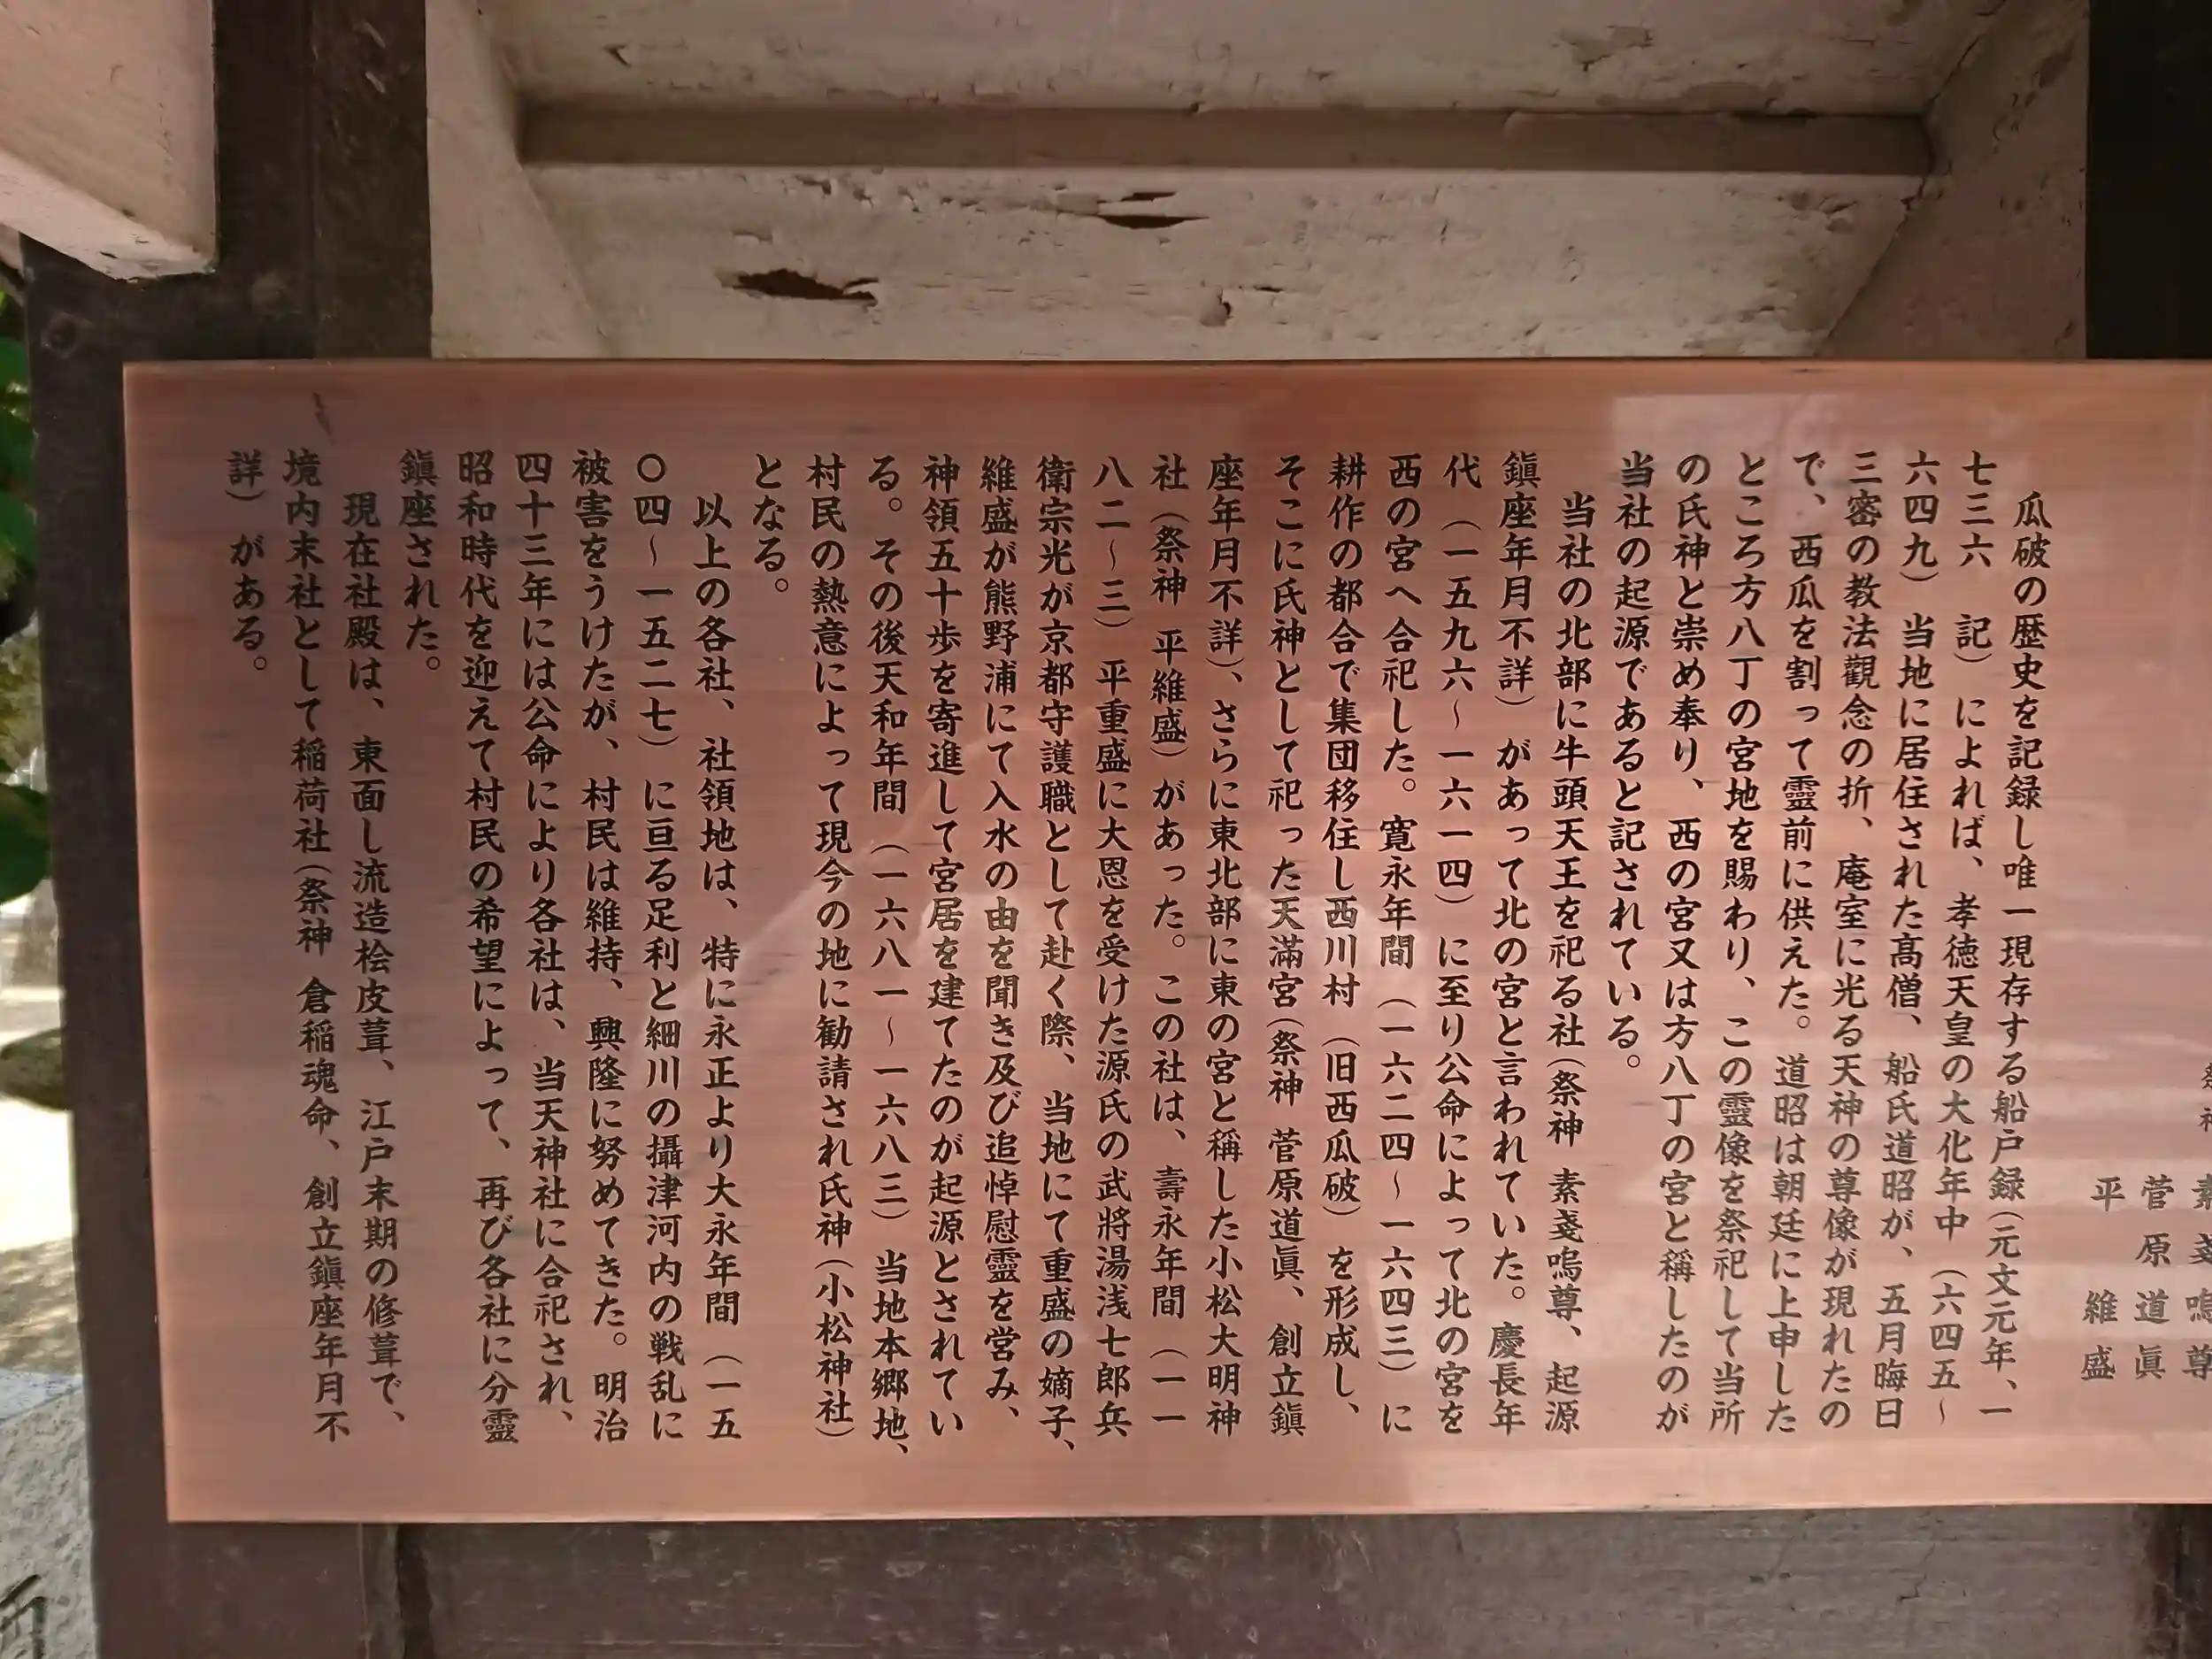 素戔嗚尊
菅原道眞
平維盛
瓜破の歴史を記録し唯一現存する船戸録（元文元年、一
七三六　記）によれば、孝徳天皇の大化年中（六四五～
六四九）当地に居住された高僧、船氏道昭が、五月晦日
三密の教法觀念の折、庵室に光る天神の尊像が現れたの
で、西瓜を割って靈前に供えた。道昭は朝廷に上申した
ところ方八丁の宮地を賜わり、この靈像を祭祀して当所
の氏神と崇め奉り、西の宮又は方八丁の宮と稱したのが
当社の起源であると記されている。
当社の北部に牛頭天王を祀る社（祭神　素戔嗚尊、起源
鎭座年月不詳）があって北の宮と言われていた。慶長年
代（一五九六～一六一四）に至り公命によって北の宮を
西の宮へ合祀した。寛永年間（一六二四～一六四三）に
耕作の都合で集団移住し西川村（旧西瓜破）を形成し、
そこに氏神として祀った天滿宮（祭神　菅原道眞、創立鎭
座年月不詳）、さらに東北部に東の宮と稱した小松大明神
社（祭神　平維盛）があった。この社は、壽永年間（一一
八二～三）平重盛に大恩を受けた源氏の武將湯浅七郎兵
衛宗光が京都守護職として赴く際、当地にて重盛の嫡子、
維盛が熊野浦にて入水の由を聞き及び追悼慰靈を営み、
神領五十歩を寄進して宮居を建てたのが起源とされてい
る。その後天和年間（一六八一～一六八三）当地本郷地、
村民の熱意によって現今の地に勧請され氏神（小松神社）
となる。
以上の各社、社領地は、特に永正より大永年間（一五
〇四～一五二七）に亘る足利と細川の攝津河内の戦乱に
被害をうけたが、村民は維持、興隆に努めてきた。明治
四十三年には公命により各社は、当天神社に合祀され、
昭和時代を迎えて村民の希望によって、再び各社に分靈
鎭座された。
現在社殿は、東面し流造桧皮葺、江戸末期の修葺で、
境内末社として稲荷社（祭神　倉稲魂命、創立鎭座年月不
詳）がある。